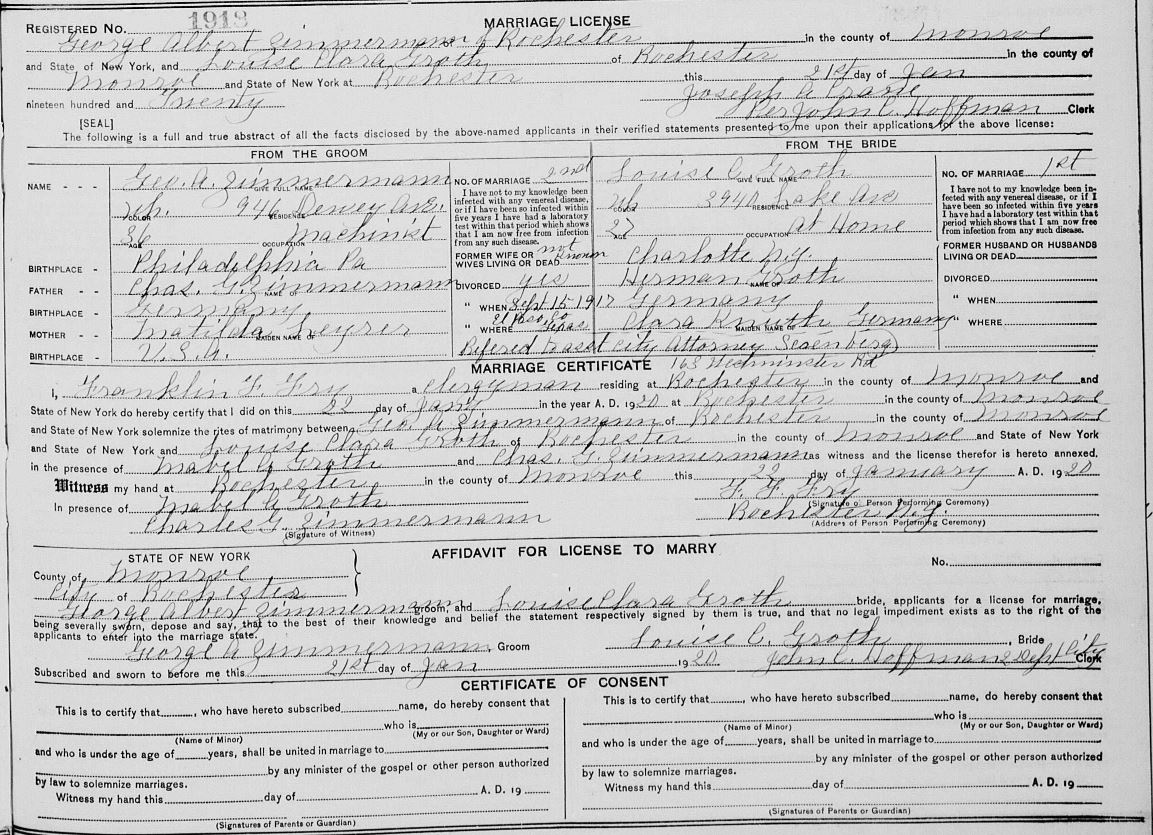 1913
MARRIAGE LICENSE
REGISTERED No.
George Albert Zimmermann of Rochester in the county of Monroe
and State of New York, and Louise Clara Groth of Rochester in the county of
Monroe and State of New York at Rochester this 21st day of Jan
nineteen hundred and Twenty Joseph A Crane
Per John C. Hoffman Clerk
[SEAL]
The following is a full and true abstract of all the facts disclosed by the above-named applicants in their verified statements presented to me upon their applications for the above license:
FROM THE GROOM
NAME - - - Geo. A. Zimmermann
GIVE FULL NAME
Wh. 946 Dewey Ave.
COLOR RESIDENCE
36 Machinist
AGE OCCUPATION
BIRTHPLACE - Philadelphia Pa
FATHER - Chas. G. Zimmermann
NAME OF
BIRTHPLACE - Germany
MOTHER - Matilda Leyrer
MAIDEN NAME OF
BIRTHPLACE - U.S.A.
NO. OF MARRIAGE 2nd
I have not to my knowledge been
infected with any venereal disease,
or if I have been so infected within
five years I have had a laboratory
test within that period which shows
that I am now free from infection
from any such disease.
FORMER WIFE OR
WIVES LIVING OR DEAD not known
DIVORCED yes
" WHEN Sept 15-1917
" WHERE El Paso, Co Texas
FROM THE BRIDE
Louise C. Groth
GIVE FULL NAME
Wh 3940 Lake Ave
COLOR RESIDENCE
27 at Home
AGE OCCUPATION
Charlotte N.Y.
Herman Groth
NAME OF
Germany
Clara Knuth Germany
MAIDEN NAME OF
NO. OF MARRIAGE 1st
I have not to my knowledge been in-
fected with any venereal disease, or if I
have been so infected within five years
I have had a laboratory test within that
period which shows that I am now free
from infection from any such disease.
FORMER HUSBAND OR HUSBANDS
LIVING OR DEAD
DIVORCED
" WHEN
" WHERE
Refered to asst City Attorney
MARRIAGE CERTIFICATE 168 Westminster Rd
I, Franklin F. Fry a Clergyman residing at Rochester in the county of Monroe and
State of New York do hereby certify that I did on this 22 day of Jany in the year A. D. 1920 at Rochester in the county of Monroe
and State of New York solemnize the rites of matrimony between Geo. A Zimmermann of Rochester in the county of Monroe
and State of New York and Louise Clara Groth of Rochester in the county of Monroe and State of New York
in the presence of Mabel A Groth and Chas. G. Zimmermann as witness and the license therefor is hereto annexed.
Witness my hand at Rochester in the county of Monroe this 22 day of January A. D. 1920
In presence of Mabel A Groth F. F. Fry
(Signature of Person Performing Ceremony)
Charles G. Zimmermann Rochester N.Y.
(Signature of Witness) (Address of Person Performing Ceremony)
STATE OF NEW YORK AFFIDAVIT FOR LICENSE TO MARRY
County of Monroe No.
City of Rochester
George Albert Zimmermann groom, and Louise Clara Groth bride, applicants for a license for marriage,
being severally sworn, depose and say, that to the best of their knowledge and belief the statement respectively signed by them is true, and that no legal impediment exists as to the right of the
applicants to enter into the marriage state.
George A Zimmermann Groom Louise C. Groth, Bride
Subscribed and sworn to before me this 21st day of Jan 1920 John C. Hoffman 2 Dept City Clerk
CERTIFICATE OF CONSENT
This is to certify that , who have hereto subscribed name, do hereby consent that
who is
(Name of Minor) (My or our Son, Daughter or Ward)
and who is under the age of years, shall be united in marriage to
by any minister of the gospel or other person authorized
by law to solemnize marriages.
Witness my hand this day of A. D. 19
(Signatures of Parents or Guardian)
This is to certify that , who have hereto subscribed name, do hereby consent that
who is
(Name of Minor) (My or our Son, Daughter or Ward)
and who is under the age of years, shall be united in marriage to
by any minister of the gospel or other person authorized
by law to solemnize marriages.
Witness my hand this day of A. D. 19
(Signatures of Parents or Guardian)